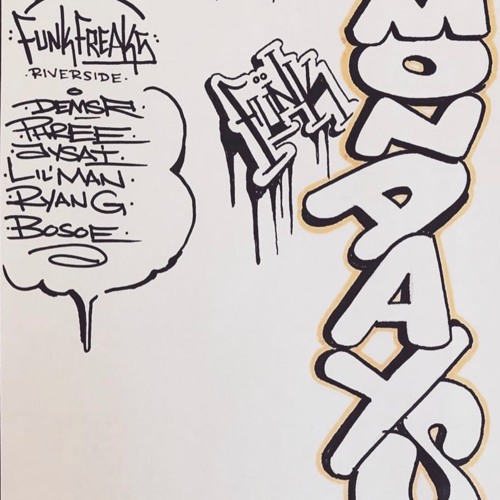 FUNKFREAKS
RIVERSIDE
DEMSK
PHREE
JYSAT
LIL'MAN
RYAN G
BOSOE
FÜNK
MONDAYS